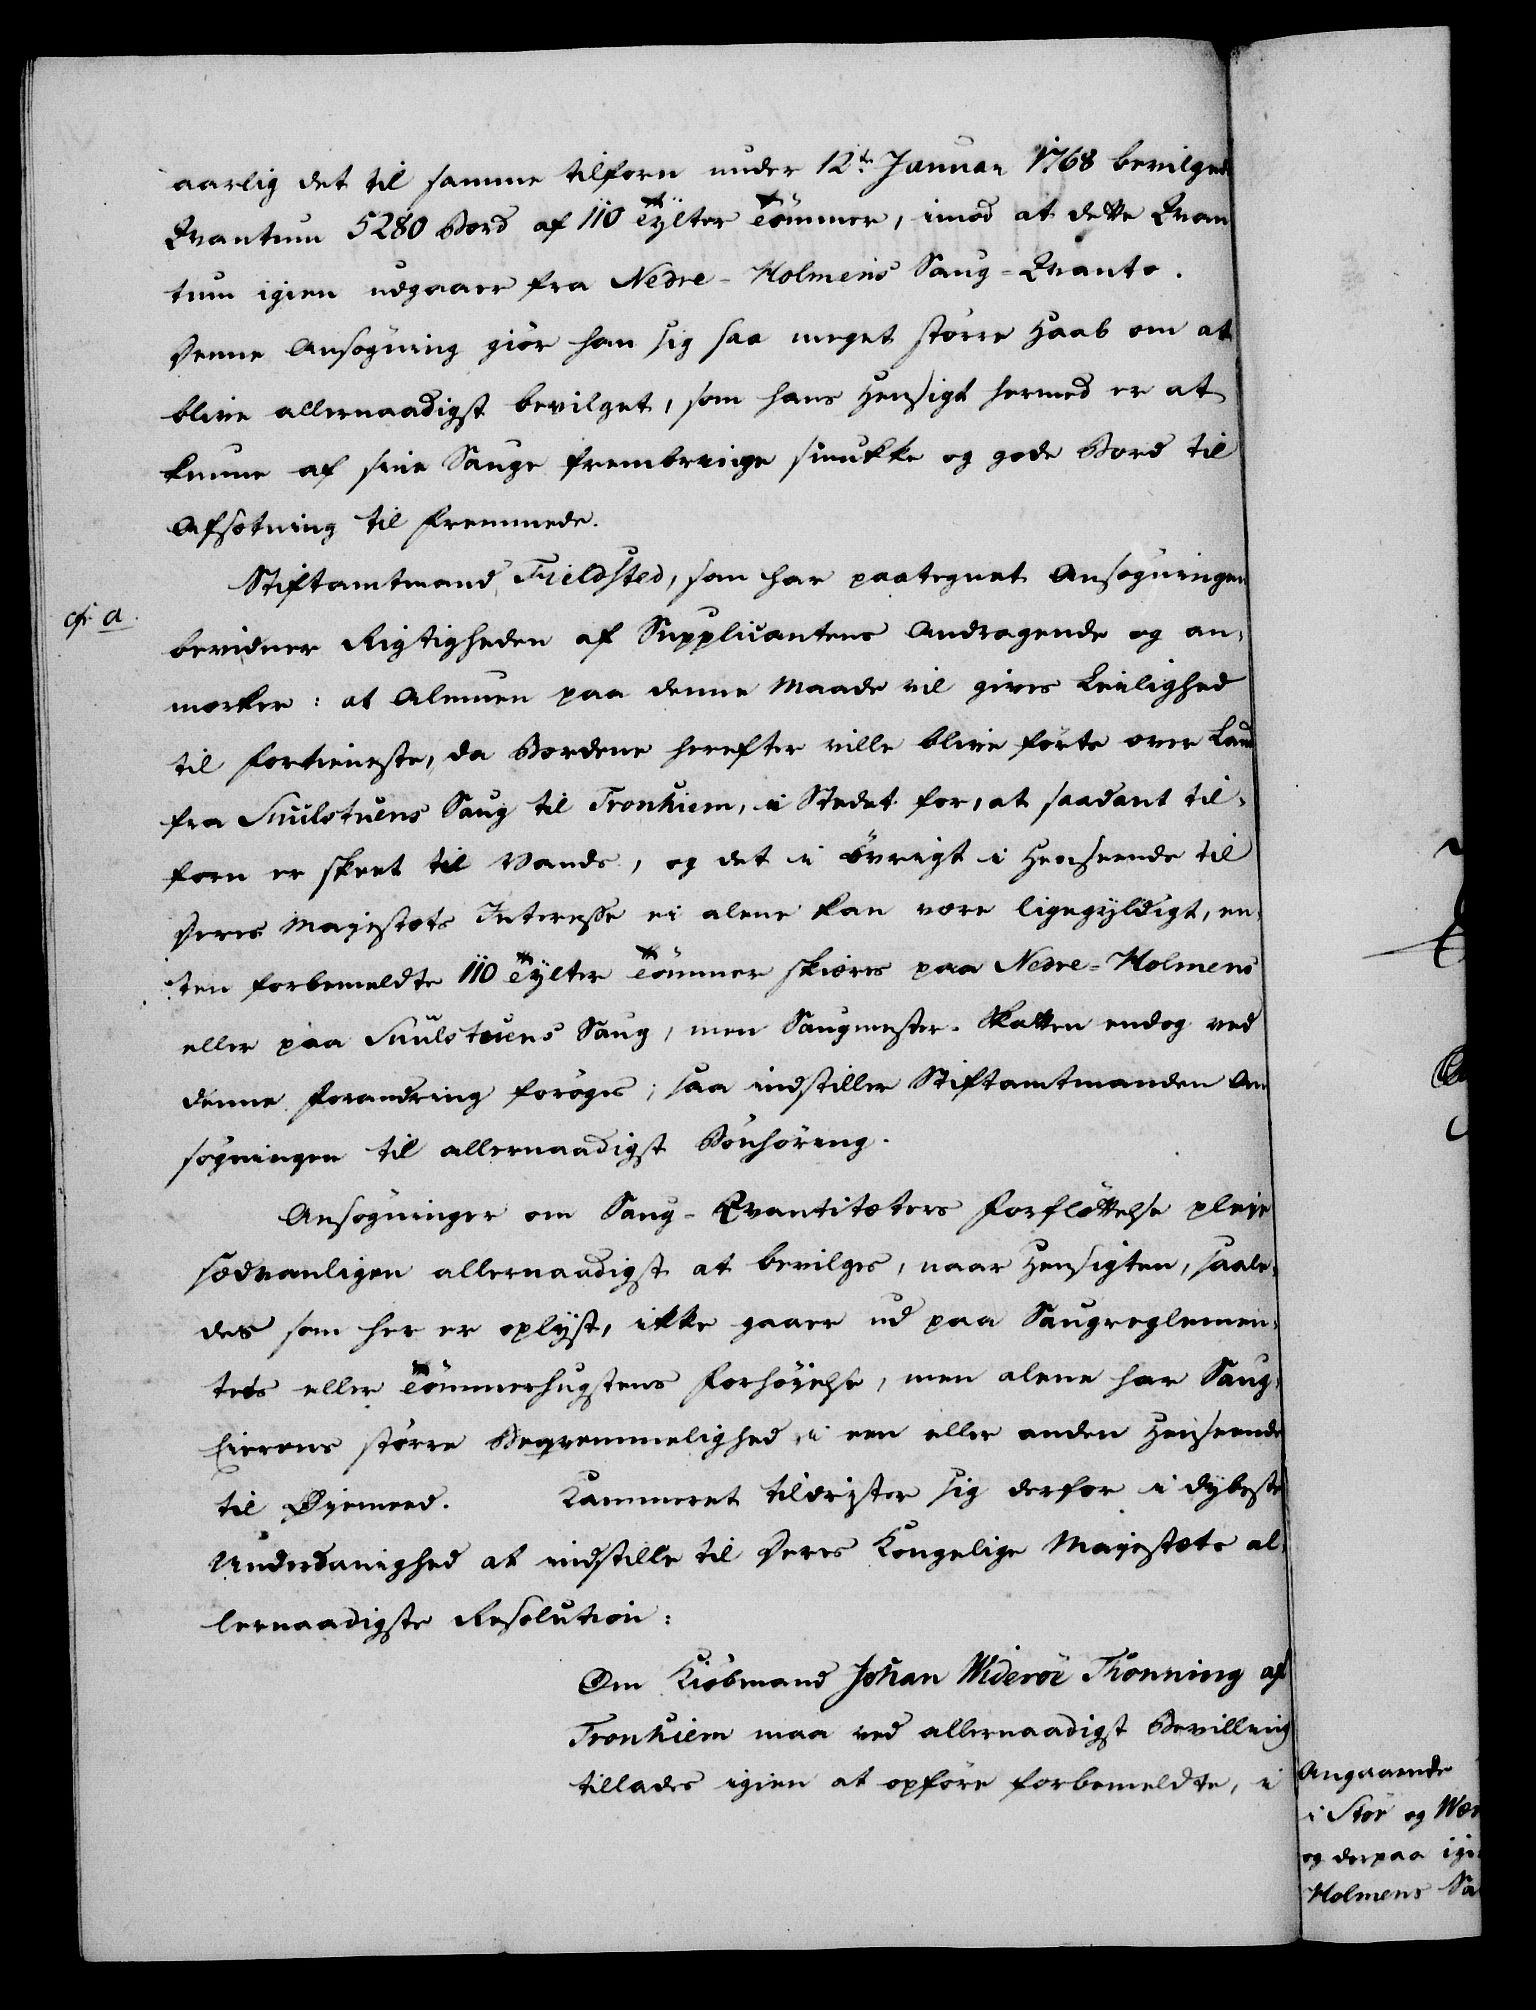 aarlig det til samme tilforn under 12te Januar 1768 bevilgede
Qvantum 5280 Bord af 110 Tÿlter Tömmer, imod at dette Qvan
tum igien udgaaer fra Nedre-Holmens Saug-Qvanto.
Denne Ansøgning giør han sig saa meget større Haab om at
blive allernaadigst bevilget, som hans Hensigt hermed er at
kunne af sine Sauge frembringe smukke og gode Bord til
Afsætning til Fremmede.
Stiftamtmand Fieldsted, som har paategnet Ansøgningen
cfr a.
bevidner Rigtigheden af Supplicantens Andragende og an-
mærker: at Almuen paa denne Maade vil gives Leilighed
til Fortieneste, da Bordene herefter ville blive førte over Land
fra Suulstuens Saug til Tronhiem, i Stedet for, at saadant til-
forn er skeet til Vands, og det i övrigt i Henseende til
Deres Majestæts Interesse ei alene kan være ligegÿldigt, en-
ten forbemeldte 110 Tÿlter Tömmer skiæres paa Nedre-Holmens
eller paa Suulstuens Saug, men Saugmester-Skatten endog ved
denne Forandring forøges; saa indstiller Stiftamtmanden An
søgningen til allernaadigst Bönhöring.
Ansøgninger om Saug-Qvantitæters Forfløttelse pleie
sædvanligen allernaadigst at bevilges, naar Hensigten, saale-
des som her er oplÿst, ikke gaaer ud paa Saugreglemen-
tets eller Tömmerhugstens Forhøÿelse, men alene har Saug-
Eierens større Beqvemmelighed i een eller anden Henseende
til Øjemeed. Kammeret tildrister sig derfor i dybeste
Underdanighed at indstille til Deres Kongelige Majestæts al-
lernaadigste Resolution:
Om Kiöbmand Johan Widerøe Thonning af
Tronhiem maa ved allernaadigst Bevilling
tillades igien at opføre forbemeldte, i
Angaaende
i Stör og Wær
og derpaa igi
Holmens Sa